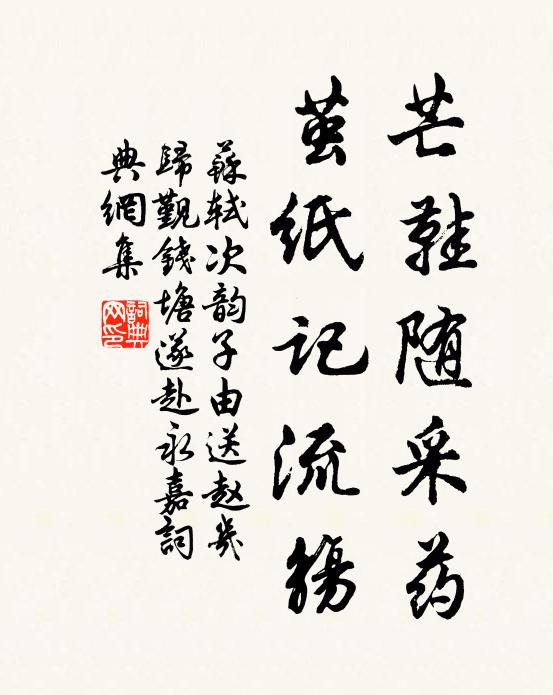 芒鞋随采药
茧纸记流觴
蘇軾次韵子由送赵幾
歸覲錢塘遂赴永嘉詞
典網集
詞典
网印